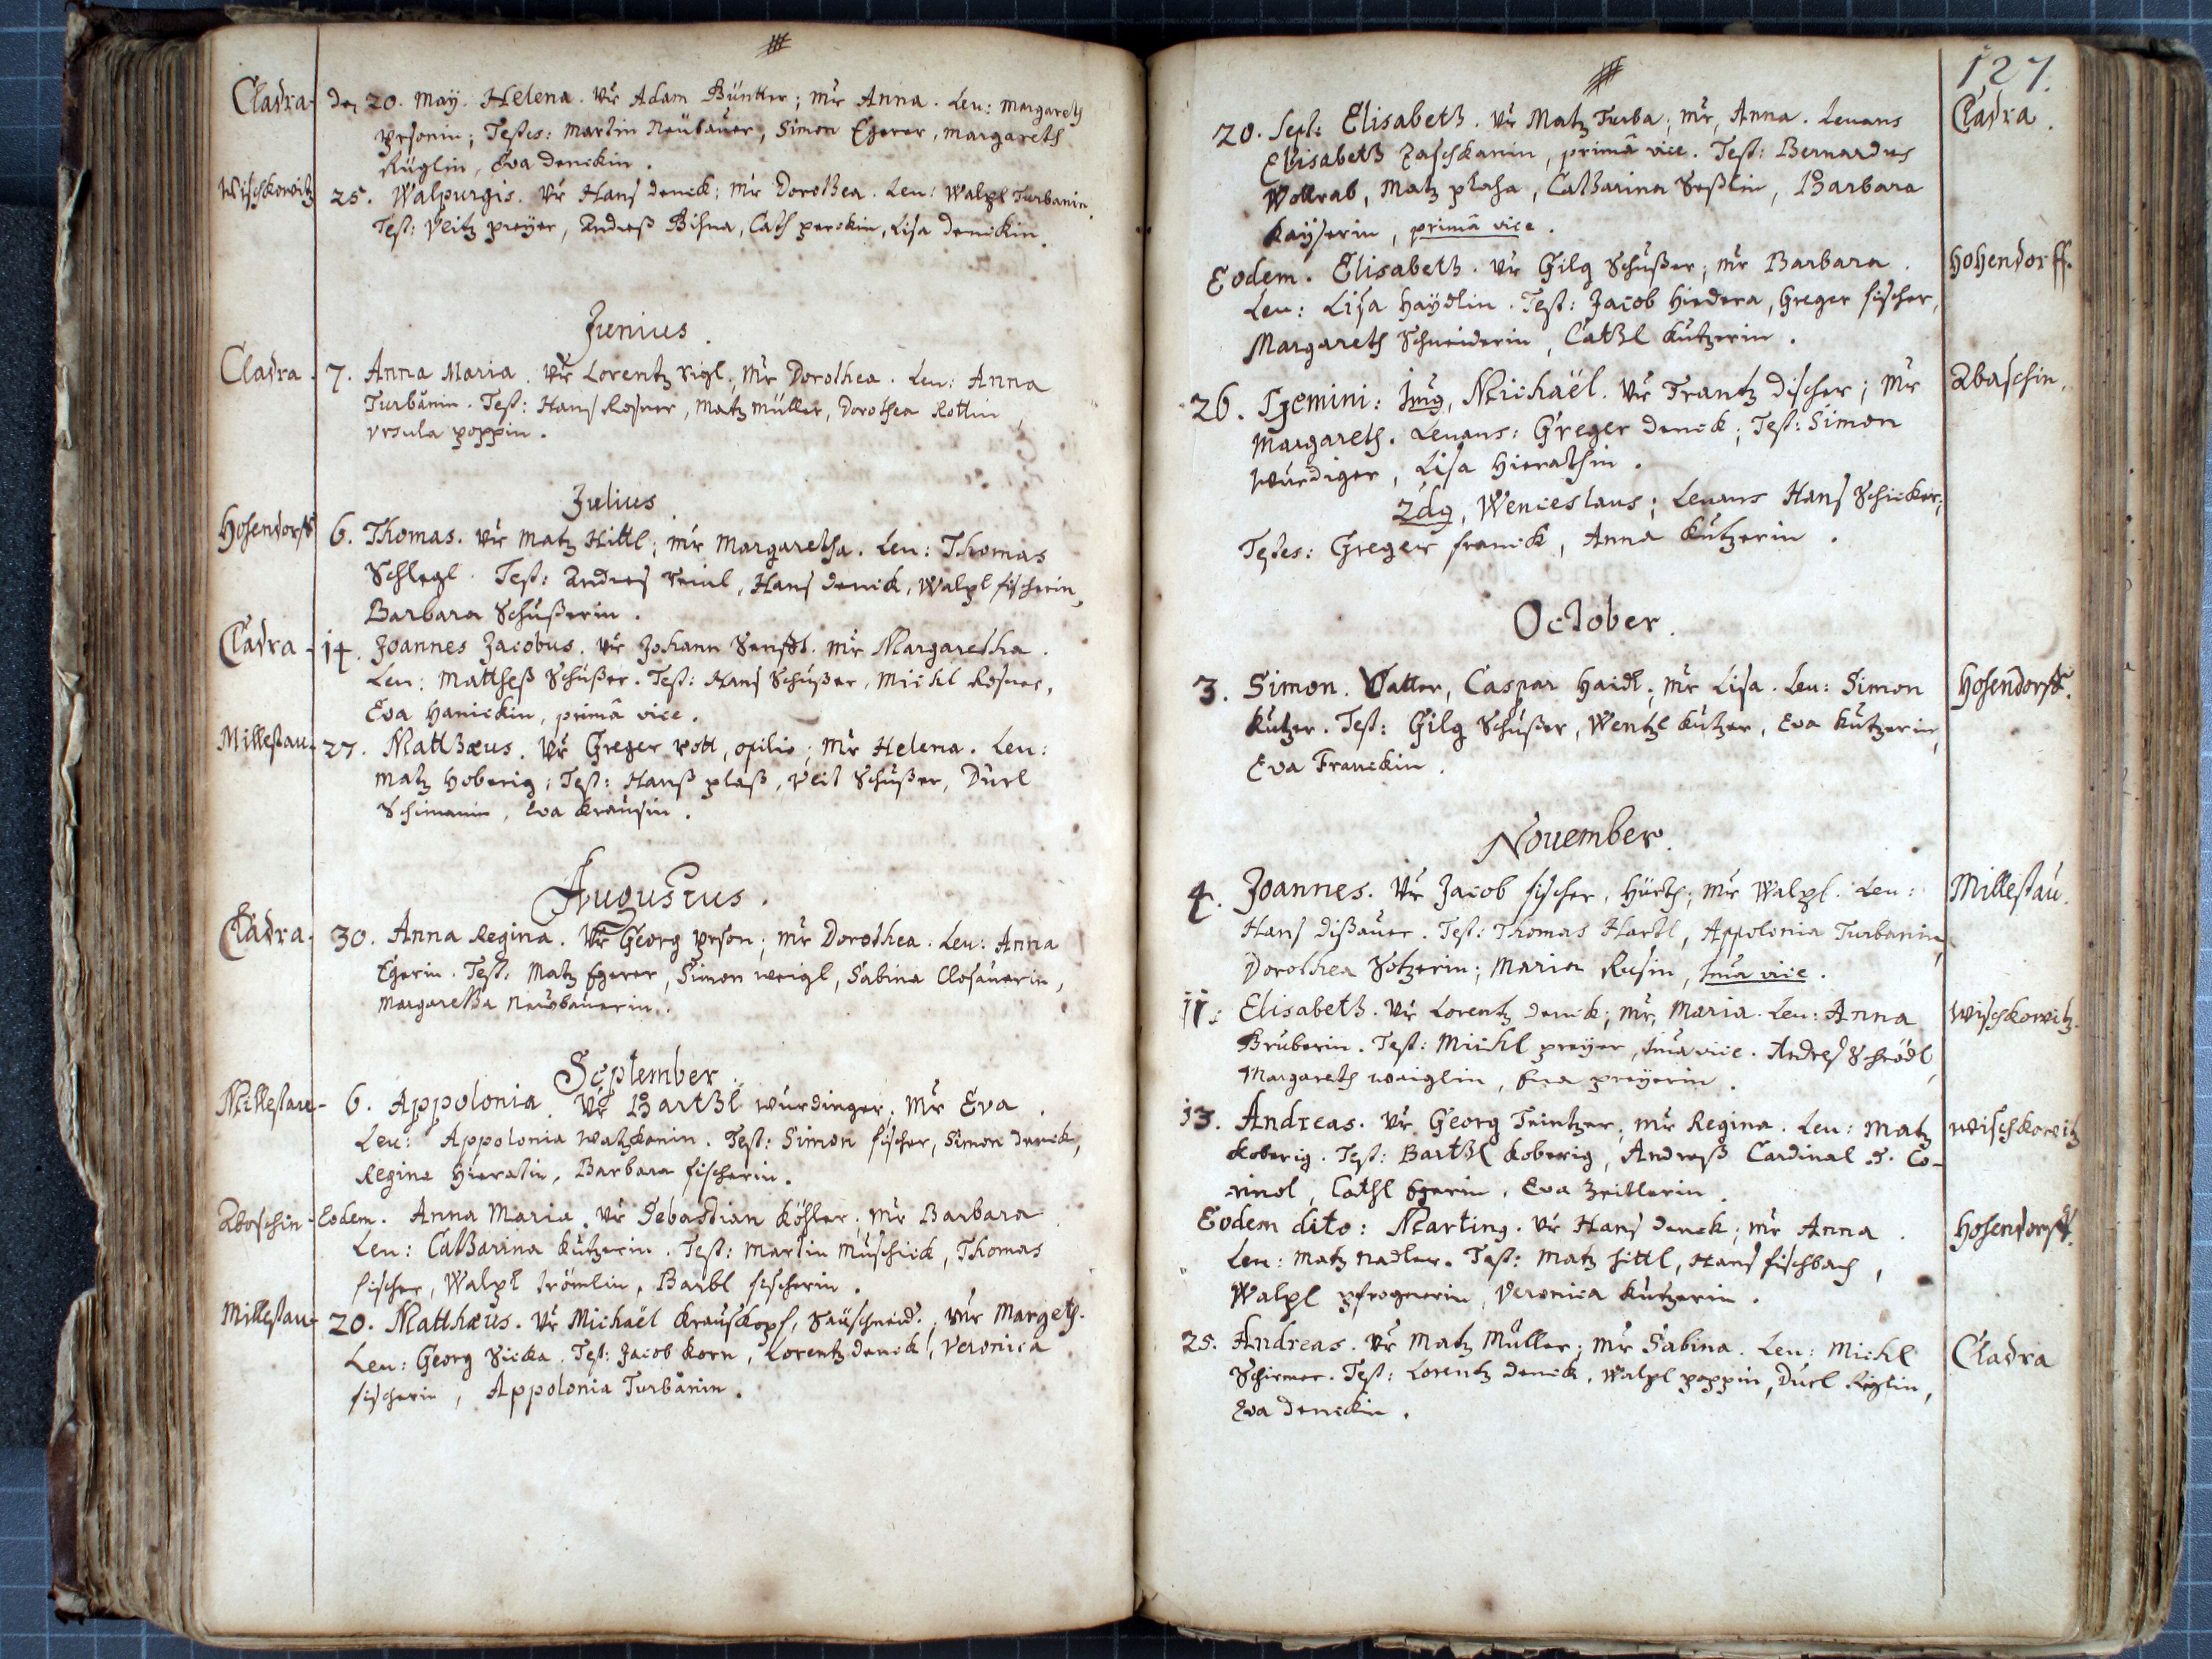 Cladra. den 20. May. Helena. Vr Adam Büntter; mr Anna. Leu: Margareth
Testes: Martin Neübauer, Simon Egerer, Margareth
Rüglin, Eva Denckin.
Wischkowitz 25. Walpurgis. Vr Hans Denck; mr Dorothea. Leu: Walpl Turbanin.
Test: Veitz preyer, Andreß Bihna, Cath perckin, Lisa Denckin.
Junius.
Cladra. 7. Anna Maria. Vr Lorentz rigl, mr Dorothea. Leu: Anna
Turbanin. Test: Hans Rosner, Matz Müller, Dorothea Rottin,
Vrsula poppin.
Julius
Hohendorff 6. Thomas. Vr Matz Hittl; mr Margaretha. Leu: Thomas
Schlegl. Test: Andres, Hans Denck, Walpl fischerin,
Barbara Schußerin.
Cladra. 14. Joannes Jacobus. Vr Johann Senfft. mr Margaretha.
Leu: Mattheß Schußer. Test: Hans Schußer, Michl Rosner,
Eva Hanickin, primâ vice.
Millestau. 27. Matthæus. Vr Greger rott, opilio; mr Helena. Leu:
Matz Hoberig; Test: Hanß plaß, Veit Schußer, Durl
Schimanin, Eva Krausin.
Augustus.
Cladra. 30. Anna Regina. Vr Georg yrson; mr Dorothea. Leu: Anna
Egerin. Test: Matz Egerer, Simon weigl, Sabina Closauerin,
Margaretha Neübauerin.
September
Millestau- 6. Appolonia. Vr Barthl würdinger. mr Eva.
Leu: Appolonia watzkanin. Test: Simon fischer, Simon Denck,
Regina Hieratin, Barbara fischerin.
Abaschin. Eodem. Anna Maria. Vr Sebastian Köhler. mr Barbara.
Leu: Catharina Kutzerin. Test: Martin Muschick, Thomas
fischer, Walpl trömlin, Barbl fischerin.
Millestau- 20. Matthæus. Vr Michaël Krauskopf, Sauschneid.; mr Margeth.
Leu: Georg Sicka. Test: Jacob Korn, Lorentz Denck, Veronica
fischerin, Appolonia Turbanin.
127.
20. Sept: Elisabeth. Vr Matz Turba; mr, Anna. Leuans Cladra.
Elisabeth Zaschkanin, primâ vice. Test: Bernardus
Wollrab, Matz plaha, Catharina Seßlin, Barbara
Kayserin, primâ vice.
Eodem. Elisabeth. Vr Gilg Schußer; mr Barbara. Hohendorff.
Leu: Lisa Haydlin. Test: Jacob Hiedera, Greger fischer,
Margareth Schneiderin, Cathl Kutzerin.
26. Gemini: Img, Michaël. Vr Frantz Discher; mr Abaschin.
Margareth. Leuans: Greger Denck; Test: Simon
würdiger, Lisa Hierathin.
2dg, Wenceslaus; Leuans Hans Schicker;
Testes: Greger franck, Anna Kutzerin.
October.
3. Simon. Vatter, Caspar Haidl; mr Lisa. Leu: Simon Hohendorff.
Kutzer. Test: Gilg Schußer, Wentzl Kutzer, Eva Kutzerin,
Eva Franckin.
November.
4. Joannes. Vr Jacob fischer, Hürth; mr Walpl. Leu: Millestau.
Hans Dißauer. Test: Thomas Hartl, Appolonia Turbanin,
Dorothea Sotzerin; Maria Rusin, Ima vice.
11. Elisabeth. Vr Lorentz Denck; mr, Maria. Leu: Anna Wischkowitz.
Bruberin. Test: Michl preyer, Ima vice. Andres Schrödl,
Margareth waiglin, Eva preyerin.
13. Andreas. Vr Georg Teintzer; mr Regina. Leu: Matz Wischkowitz
Koberig. Test: Barthl Koberig, Andreß Cardinal d. Co-
rinol, Cathl Egerin, Eva Zeitlerin.
Eodem dito: Marting. Vr Hans Denck; mr Anna. Hohendorff.
Leu: Matz Nadler. Test: Matz Hittl, Hans fischbach,
Walpl pfrognerin, Veronica Kutzerin.
25. Andreas. Vr Matz Müller; mr Sabina. Leu: Michl Cladra
Schirmer. Test: Lorentz Denck, Walpl poppin, Durl Riglin,
Eva Denckin.